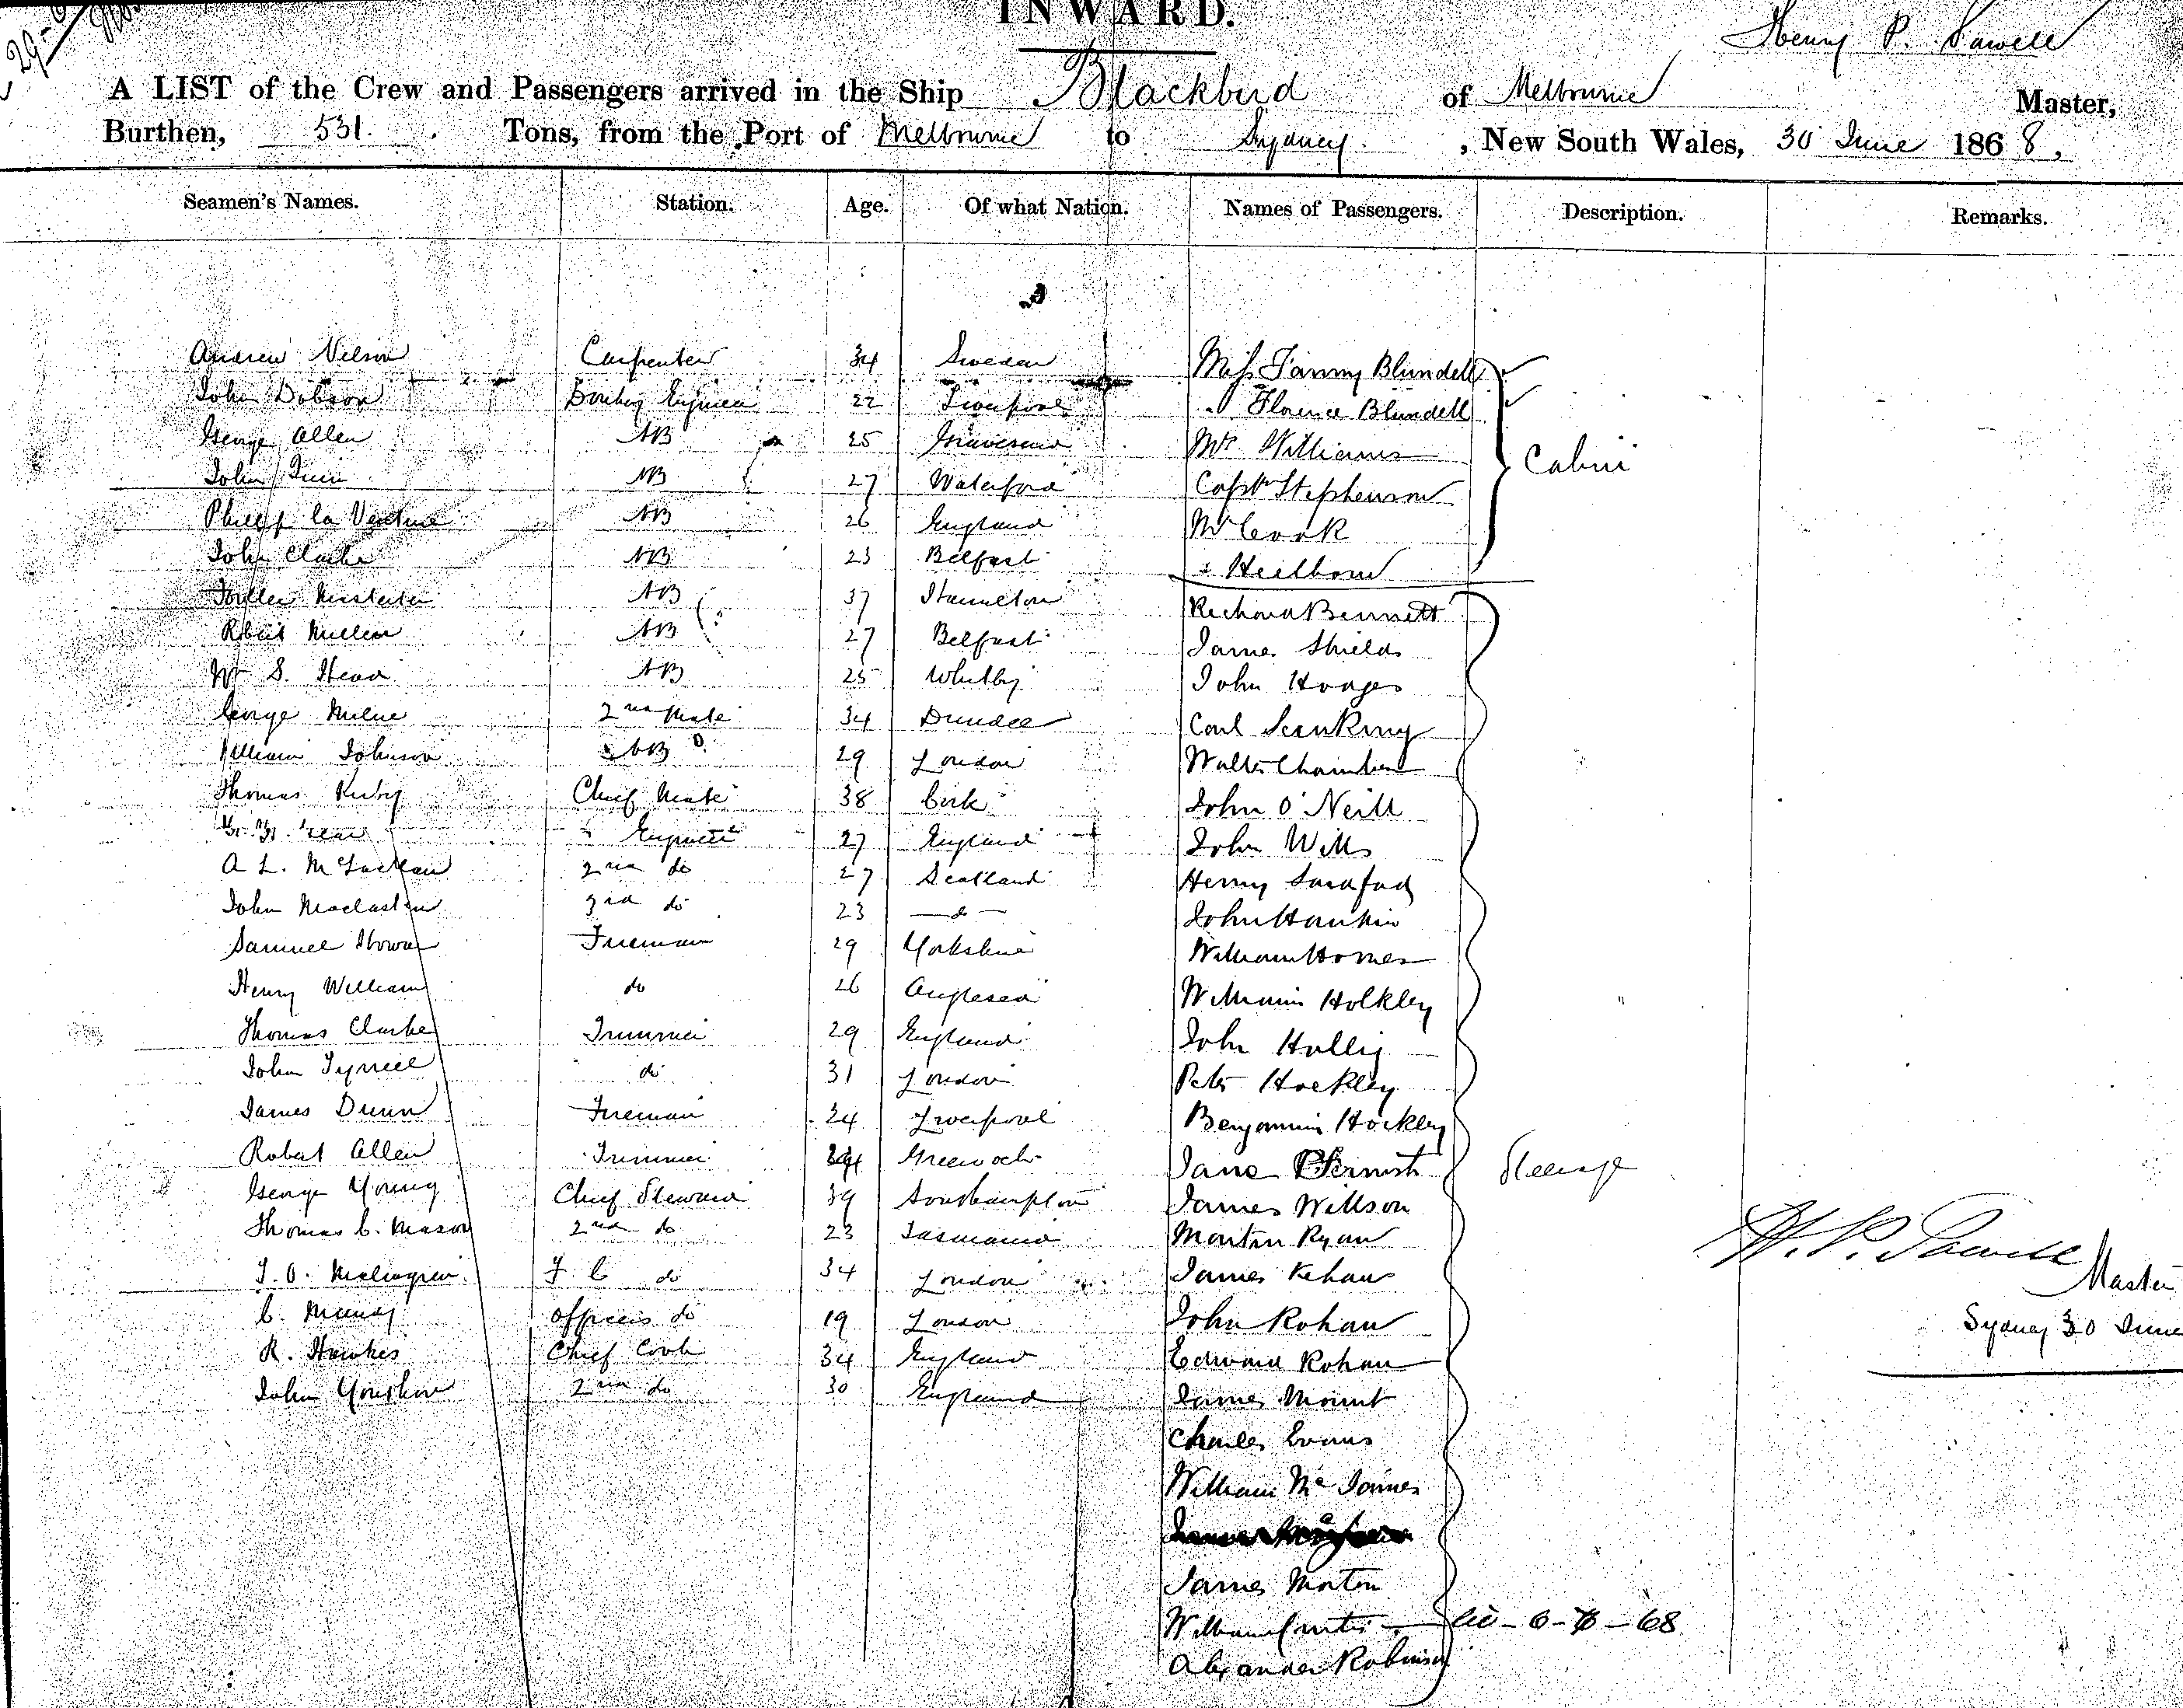 INWARD.
Henry P.
A LIST of the Crew and Passengers arrived in the Ship Blackbird of Melbourne Master,
Burthen, 531. Tons, from the Port of Melbourne to Sydney, New South Wales, 30 June 1868,
Seamen's Names. Station. Age. Of what Nation. Names of Passengers. Description. Remarks.
Andrew Nelson Carpenter 34 Sweden Miss Fanny Blundell
John Dobson Donkey Engineer 22 Liverpool " Florence Blundell
George Allen AB 25 Gravesend Mr Williams
John AB 27 Waterford Captn Stephenson Cabin
Philip la Venture AB 26 England Mr Cook
John Clarke AB 23 Belfast " Heilborn
AB 37 Hamilton Richard Bennett
Robert AB 27 Belfast James Shields
Wm S. Head AB 25 Whitby John Hodges
George Milne 2nd Mate 34 Dundee Carl
William Johnson AB 29 London Walter Chambers
Thomas Kirby Chief Mate 38 Cork John O'Neill
" Engineer 27 England John Wills
A L. McLachlan 2nd do 27 Scotland Henry
John 3rd do 23 — do — John Hankin
Samuel Fireman 29 Yorkshire William Homes
Henry William do 26 Anglesea William Holkley
Thomas Clarke Trimmer 29 England John Hollis
John Tyrrell do 31 London Peter Hockley
James Dunn Fireman 24 Liverpool Benjamin Hockley
Robert Allen Trimmer Greenock Jane Steerage
George Young Chief Steward 39 Southampton James Willson
Thomas C. Mason 2nd do 23 Tasmania Martin Ryan
F. C do 34 London James Kehan
C. officers do 19 London John Rohan
R. Hawkes Chief Cook 34 England Edward Rohan
John 2nd do 30 England James Mount
Charles Evans
William Mc
James Morton
William Curtis
Alexander Robinson
H. P.
Master
Sydney 30 June